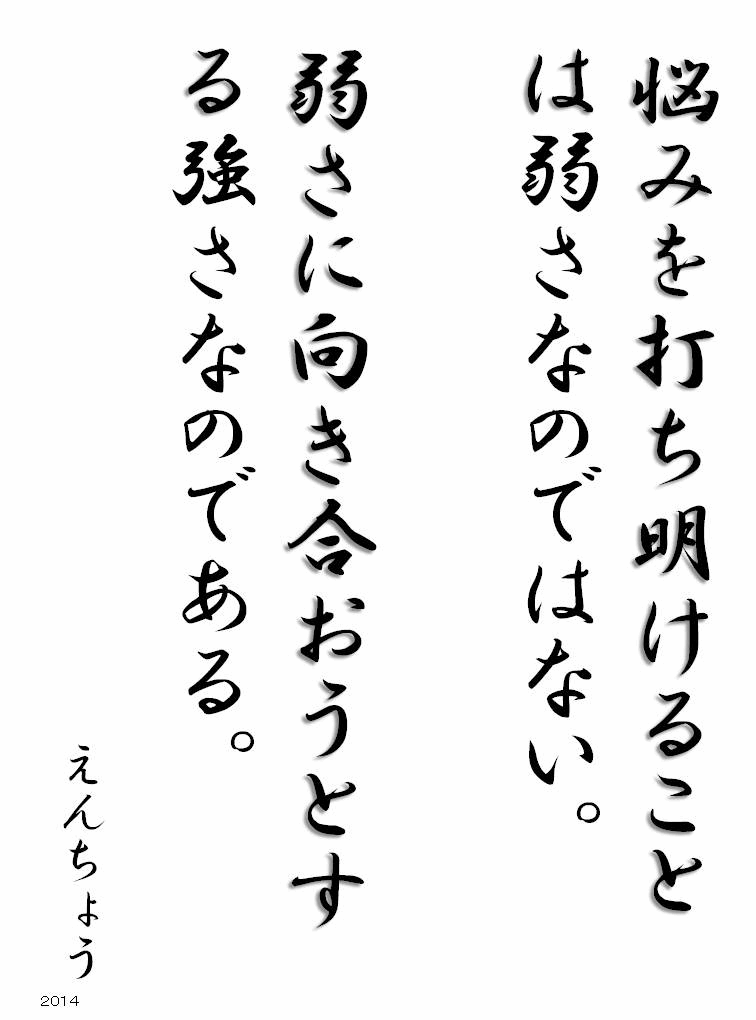 悩みを打ち明けること
は弱さなのではない。
弱さに向き合おうとす
る強さなのである。
えんちょう
2014